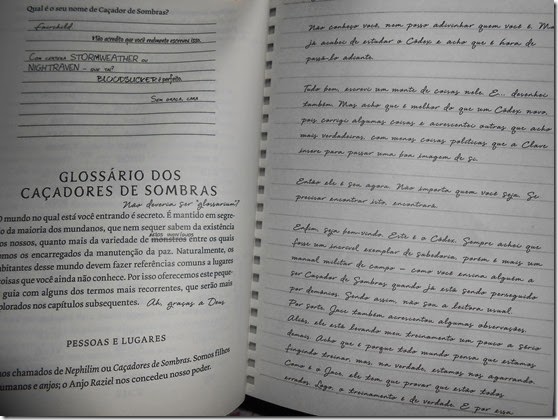 Qual é o seu nome de Caçador de Sombras?
Fairchild
Não acredito que você realmente escreveu isso.
Com certeza STORMWEATHER ou
NIGHTRAVEN – que tal?
BLOODSUCKER é perfeito.
Sem graça, cara
GLOSSÁRIO DOS
CAÇADORES DE SOMBRAS
Não deveria ser "glossarium"?
O mundo no qual está você entrando é secreto. É mantido em segre-
do da maioria dos mundanos, que nem sequer sabem da existência
dos nossos, quanto mais da variedade de monstros entre os quais
somos os encarregados da manutenção da paz. Naturalmente, os
habitantes desse mundo devem fazer referências comuns a lugares
coisas que você ainda não conhece. Por isso oferecemos este peque-
guia com alguns dos termos mais recorrentes, que serão mais
plorados nos capítulos subsequentes. Ah, graças a Deus
PESSOAS E LUGARES
mos chamados de Nephilim ou Caçadores de Sombras. Somos filhos
humanos e anjos; o Anjo Raziel nos concedeu nosso poder.
Não conheço você, nem posso adivinhar quem você é. Mas
já acabei de estudar o Códex e acho que é hora de
passá-lo adiante.
Tudo bem, escrevi um monte de coisas nele. E... desenhei
também. Mas acho que é melhor do que um Códex novo
pois corrigi algumas coisas e acrescentei outras que acho
mais verdadeiras, com menos coisas políticas que a Clave
insere para passar uma boa imagem de si.
Então ele é seu agora. Não importa quem você seja. Se
precisar encontrar isto, encontrará.
Enfim, seja bem-vindo. Este é o Códex. Sempre achei que
fosse um incrível exemplar de sabedoria, porém é mais um
manual militar de campo – como você ensina alguém a
ser Caçador de Sombras quando já está sendo perseguido
por demônios. Sendo assim, não sou a leitora usual.
Por sorte, Jace também acrescentou algumas observações.
Aliás, ele está levando meu treinamento um pouco a sério
demais. Acho que é porque todo mundo pensa que estamos
fingindo treinar, mas, na verdade, estamos nos agarrando.
Como é o Jace, ele tem que provar que estão todos
errados. Logo, o treinamento é de verdade. E por essa